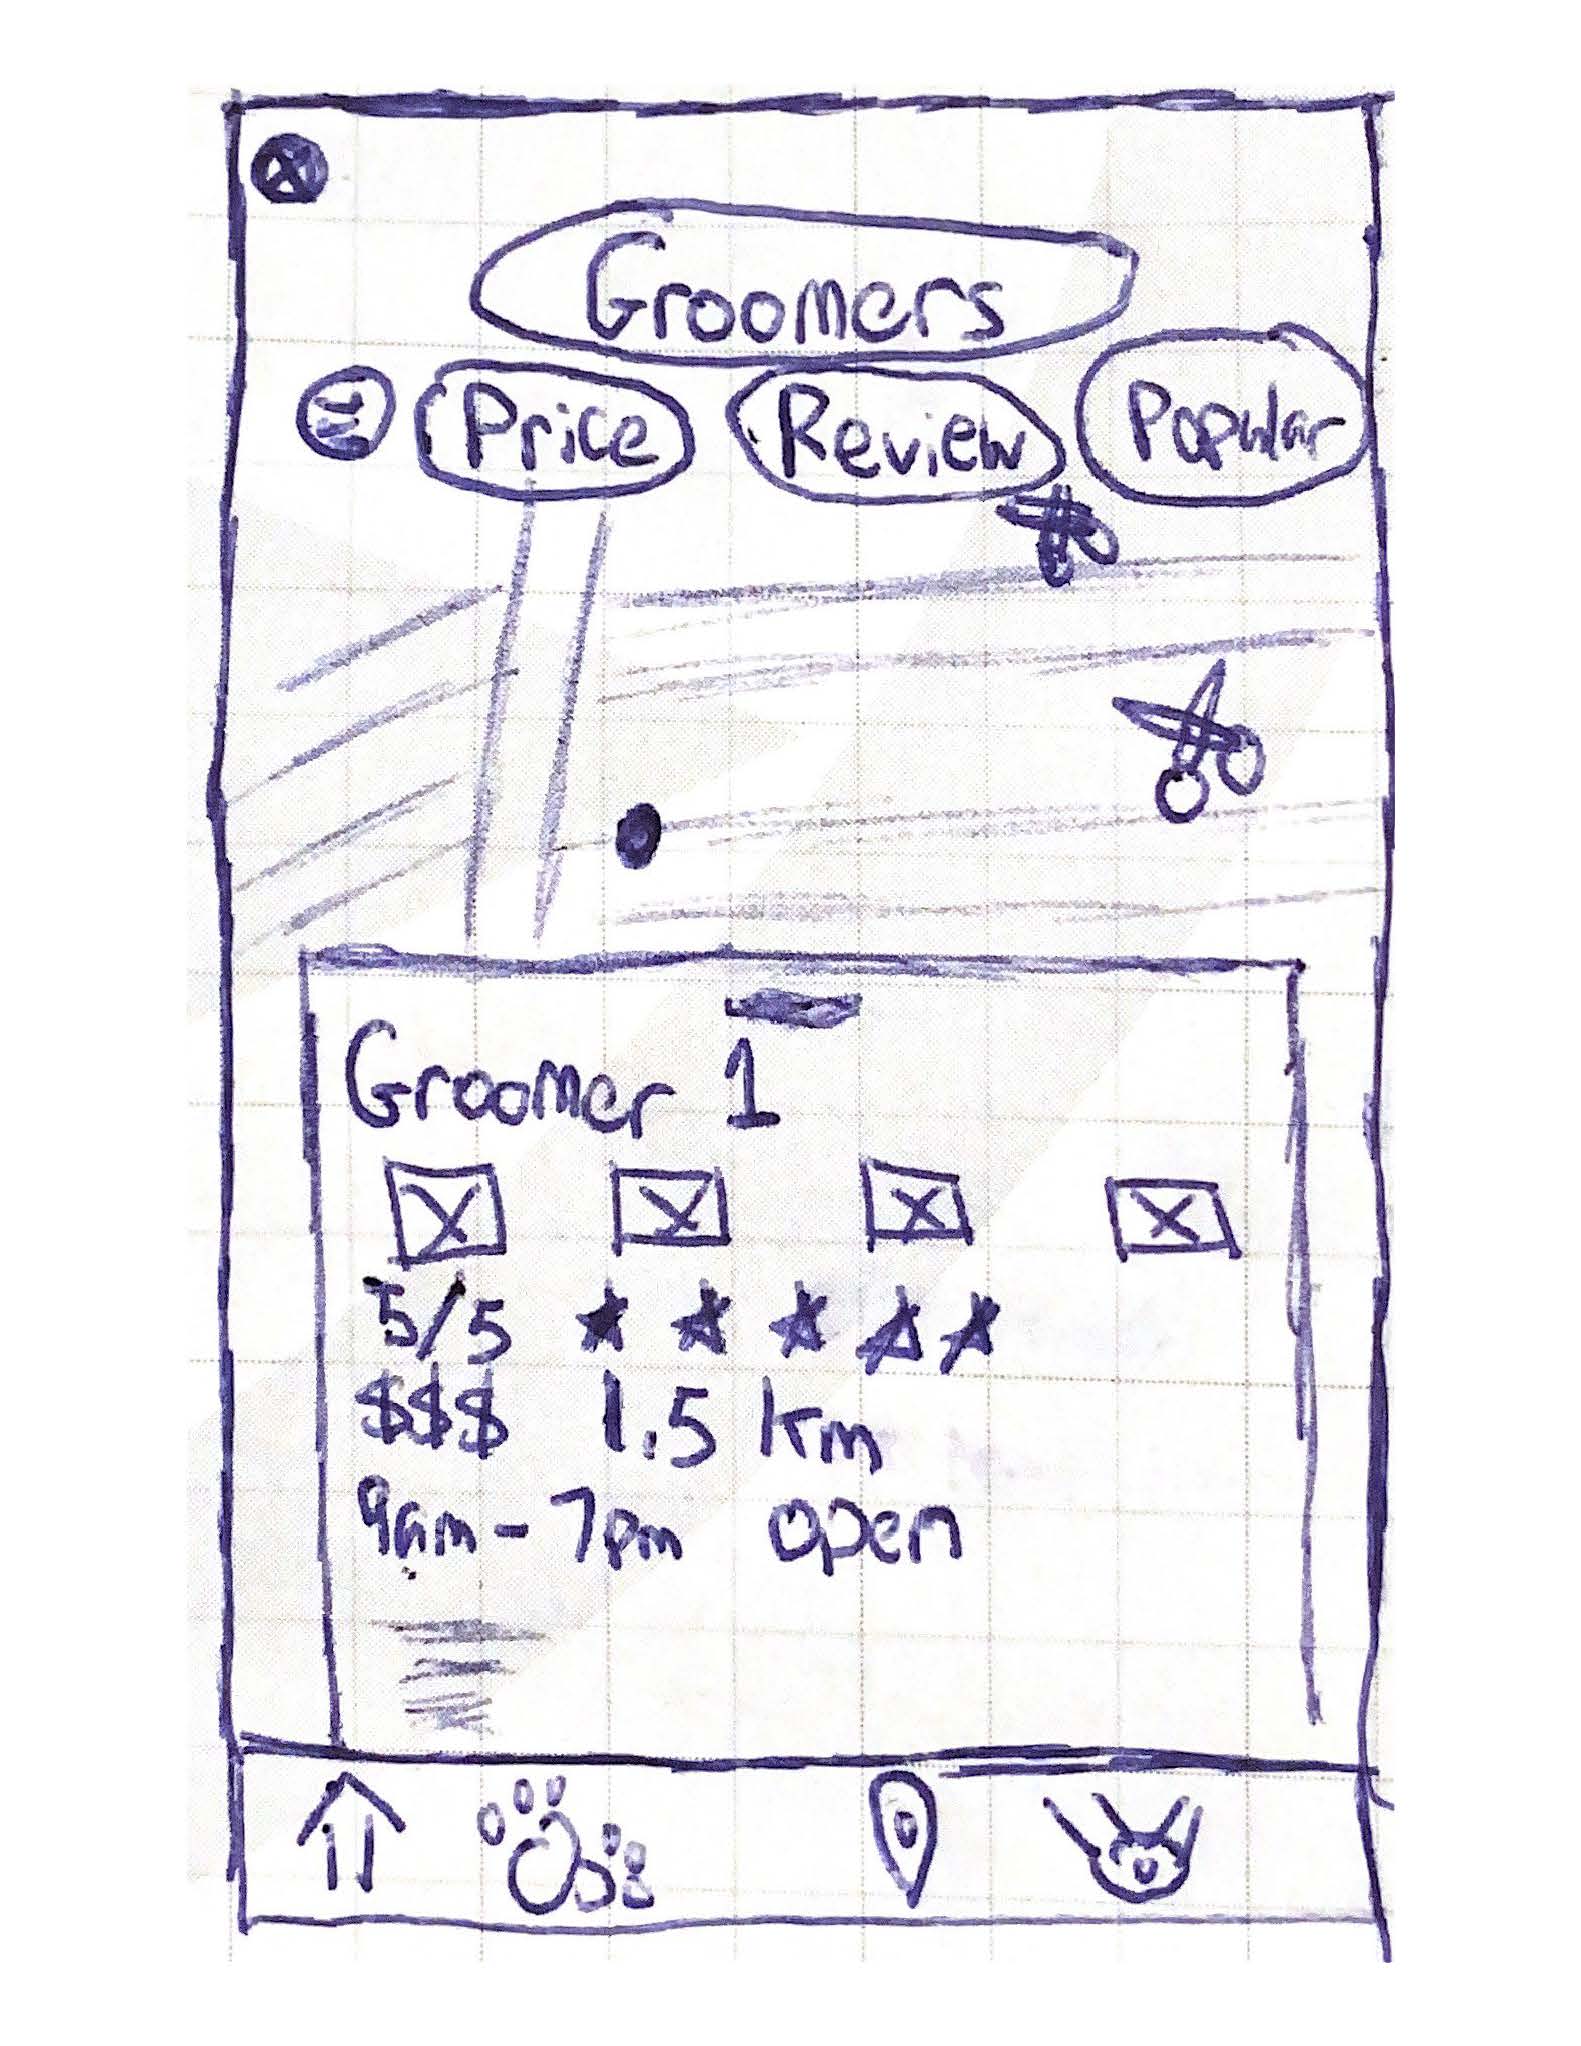 Groomers
Price Review Popular
Groomer 1
5/5
$$$ 1.5 km
9am - 7pm open